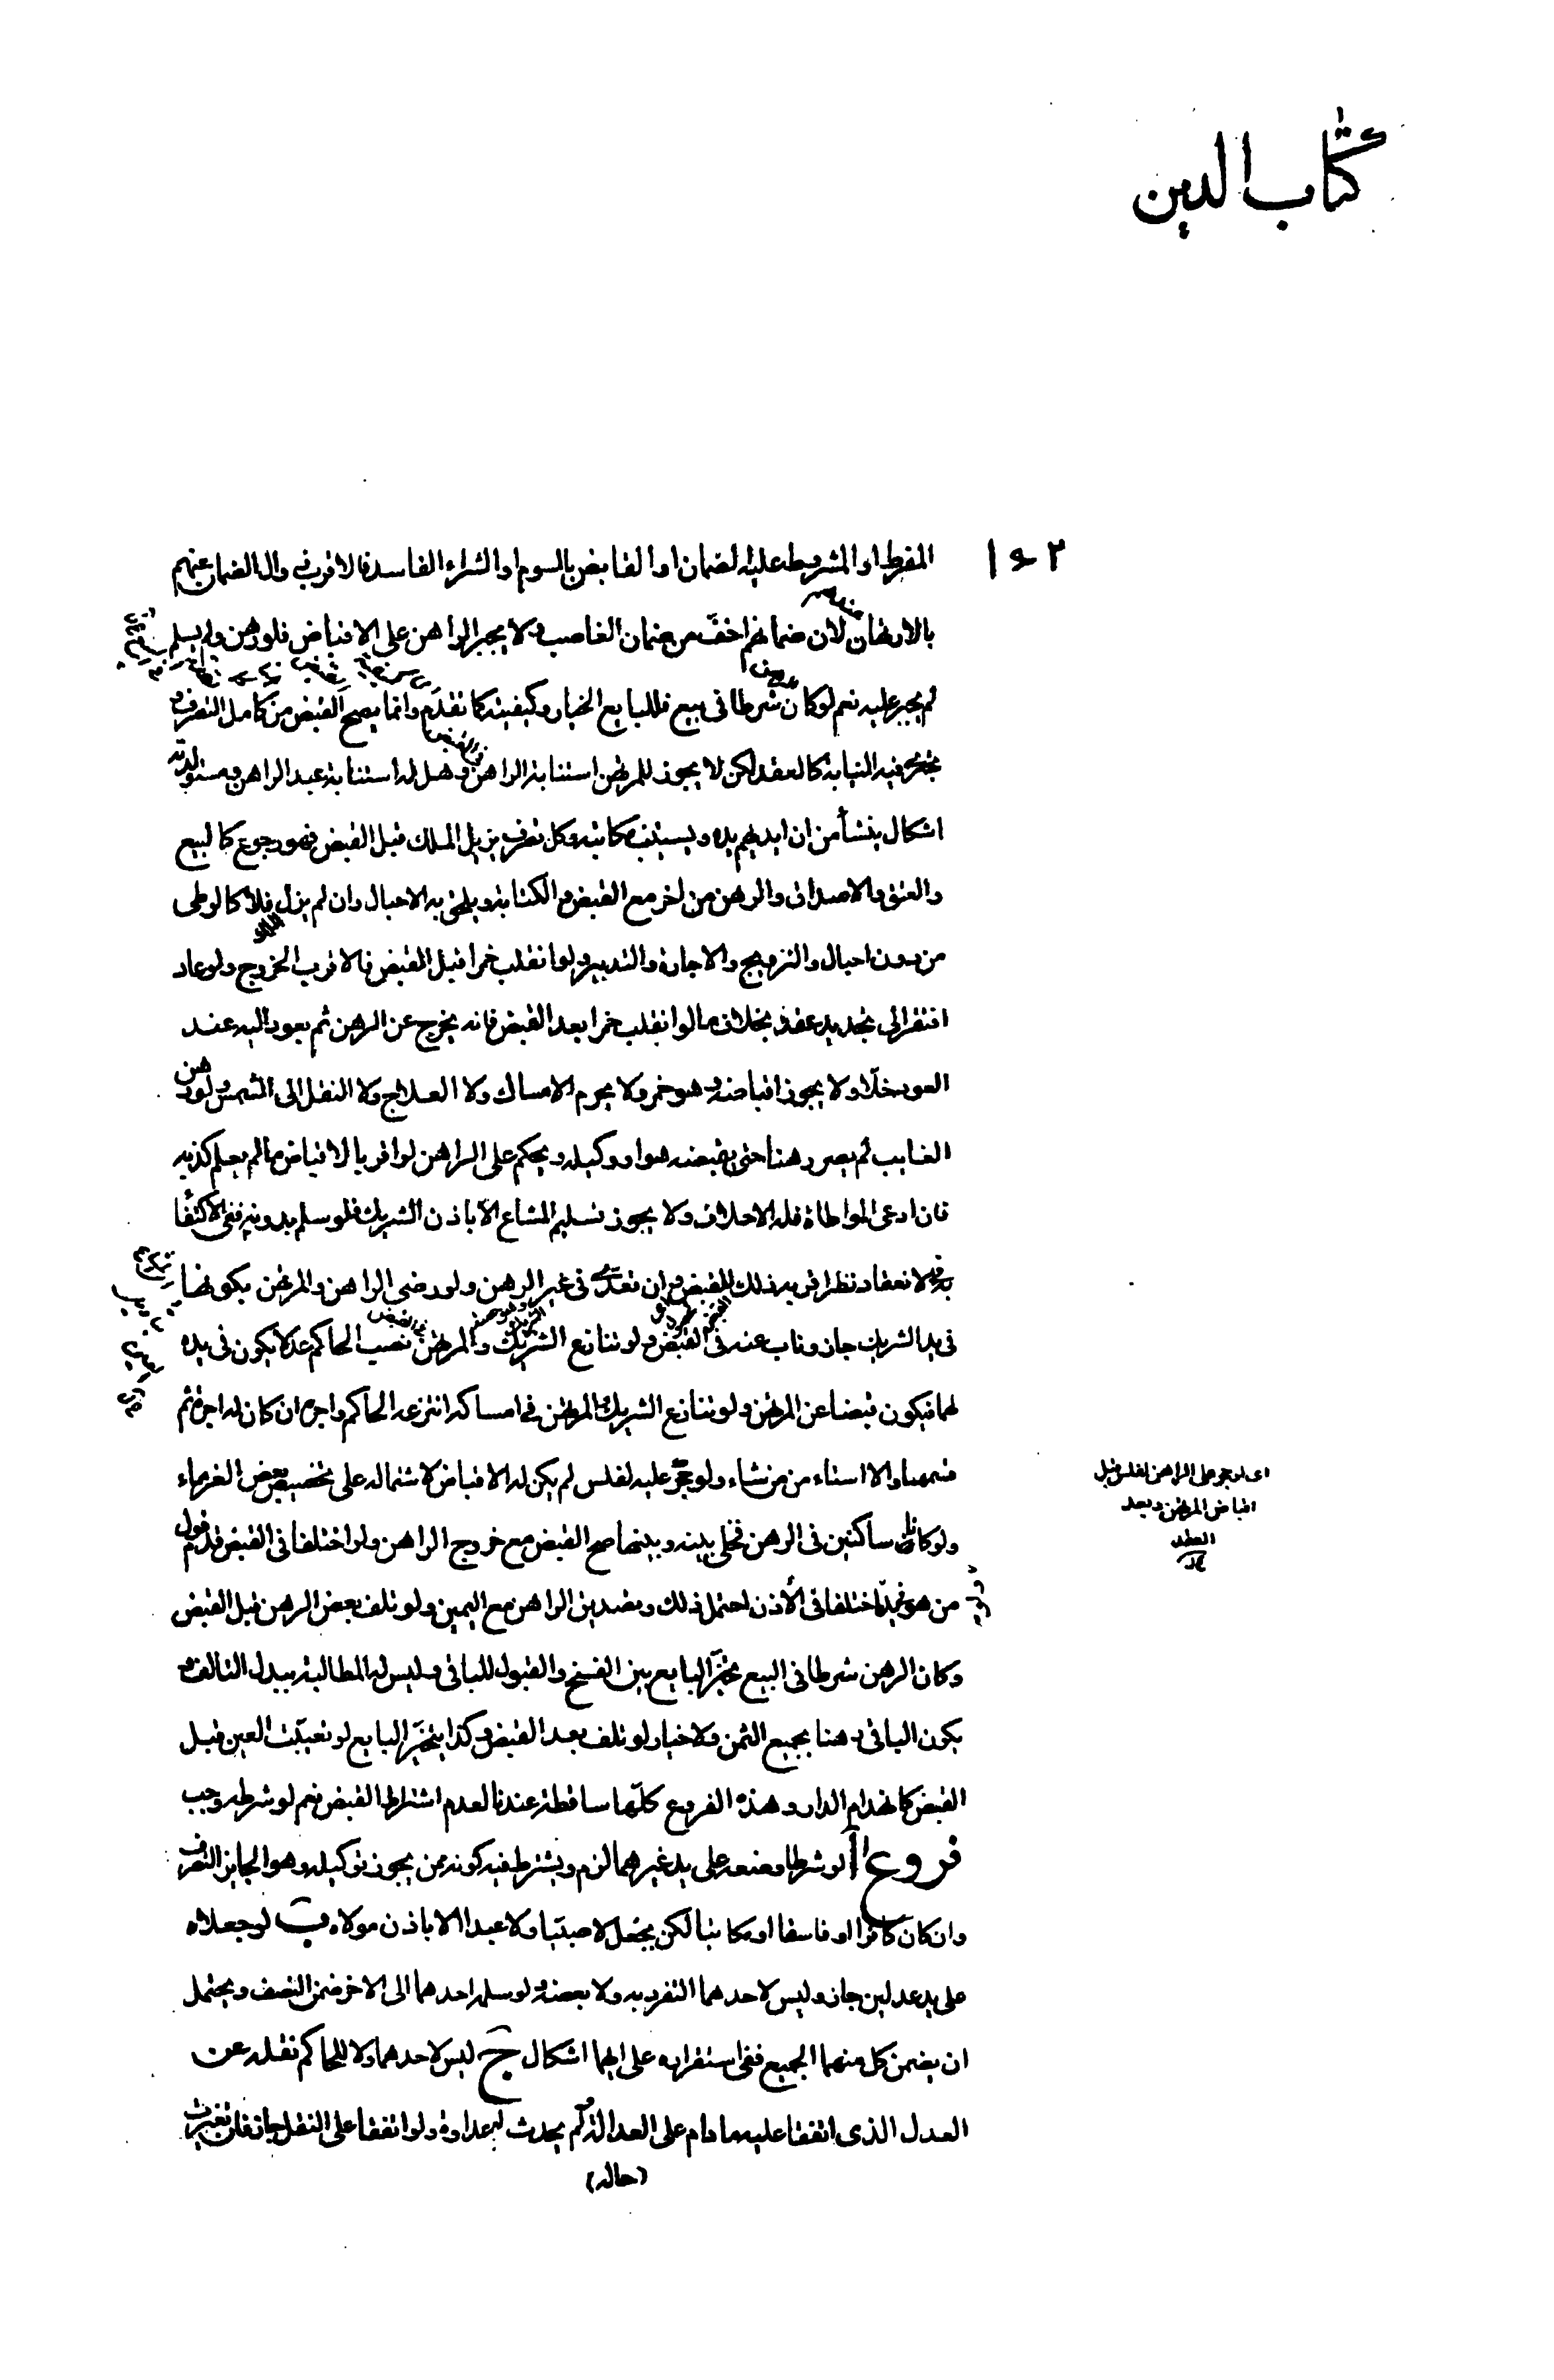 كتاب الدين
المفرط او المشروط عليه الضمان او القابض بالسوم او الشراء الفاسد فالاقرب زوال الضمان عنهم
بالارتهان لان ضمانهم اخف من ضمان الغاصب ولا يجبر الراهن على الاقباض فلو رهن ولم يسلم
لم يجبر عليه نعم لو كان شرطا في بيع فللبايع الخيار وكيفيته كما تقدم وانما يصح القبض من كامل التصرف و
يجري فيه النيابة كالعقد لكن لا يجوز للمرتهن استنابة الراهن وهل له استنابة عبد الراهن ومستولدته
اشكال ينشأ من ان ايديهم يده ويستنيب مكاتبه وكل تصرف يزيل الملك قبل القبض فهو رجوع كالبيع
والعتق والاصداق والرهن من اخر مع القبض و الكتابة ويلحق به الاحبال وان لم يزل فلا كالوطى
من دون احبال والتزويج والاجارة والتدبير ولو انقلب خمرا قبل القبض فالاقرب الخروج ولو عاد
افتقر الى تجديد عقد بخلاف ما لو انقلب خمرا بعد القبض فانه يخرج عن الرهن ثم يعود اليه عند
العود خلا ولا يجوز اقباضه وهو خمر ولا يحرم الامساك ولا العلاج ولا النقل الى الشمس ولو رهن
الغايب لم يصر رهنا حتى يقبضه هو او وكيله ويحكم على الراهن لو اقر بالاقباض ما لم يعلم كذبه
فان ادعى المواطاة فله الاحلاف ولا يجوز تسليم المشاع الا باذن الشريك فلو سلم بدونه ففي الاكتفا
به في الانعقاد نظر اقربه ذلك للقبض وان تعدى في غير الرهن ولو رضى الراهن والمرتهن بكونها
في يد الشريك جاز وناب عنه في القبض ولو تنازع الشريك والمرتهن نصب الحاكم عدلا يكون في يده
لهما فيكون قبضا عن المرتهن ولو تنازع الشريك المرتهن في امساكه انتزعه الحاكم واجره ان كان له اجرة ثم
قسمها والا استناب من شاء ولو حجر عليه لفلس لم يكن له الاقباض لاشتماله على تخصيص بعض الغرماء
ولو كانا ساكنين في الرهن فخلى بينه وبينها صح القبض مع خروج الراهن ولو اختلفا في القبض قدم قول
من هو في يده ولو اختلفا في الأذن احتمل ذلك وتصديق الراهن مع اليمين ولو تلف بعض الرهن قبل القبض
وكان الرهن شرطا في البيع تخير البايع بين الفسخ والقبول للباقي وليس له المطالبة ببدل التالف و
يكون الباقي رهنا بجميع الثمن ولا خيار لو تلف بعد القبض وكذا يتخير البايع لو تعيبت العين قبل
القبض كانهدام الدار وهذه الفروع كلها ساقطة عندنا لعدم اشتراط القبض نعم لو شرطه وجب
فروع أ لو شرطا وضعه على يد غيرهما لزم ويشترط فيه كونه ممن يجوز توكيله وهو الجايز التصرف
وان كان كافرا او فاسقا او مكاتبا لكن بجعل لا صبيا ولا عبدا الا باذن مولاه ب لو جعلاه
على يد عدلين جاز وليس لاحدهما التفرد به ولا ببعضه ولو سلمه احدهما الى الاخر ضمن النصف ويحتمل
ان يضمن كل منهما الجميع ففي استقراره على ايهما اشكال ج ليس لاحدهما ولا للحاكم نقله عن
العدل الذى اتفقا عليه ما دام على العدالة ولم يحدث له عداوة ولو اتفقا على النقل جاز فان تغيرت
(حاله)
اى لو حجر على الراهن لفلس قبل
اقباض المرتهن وبعد
العقد